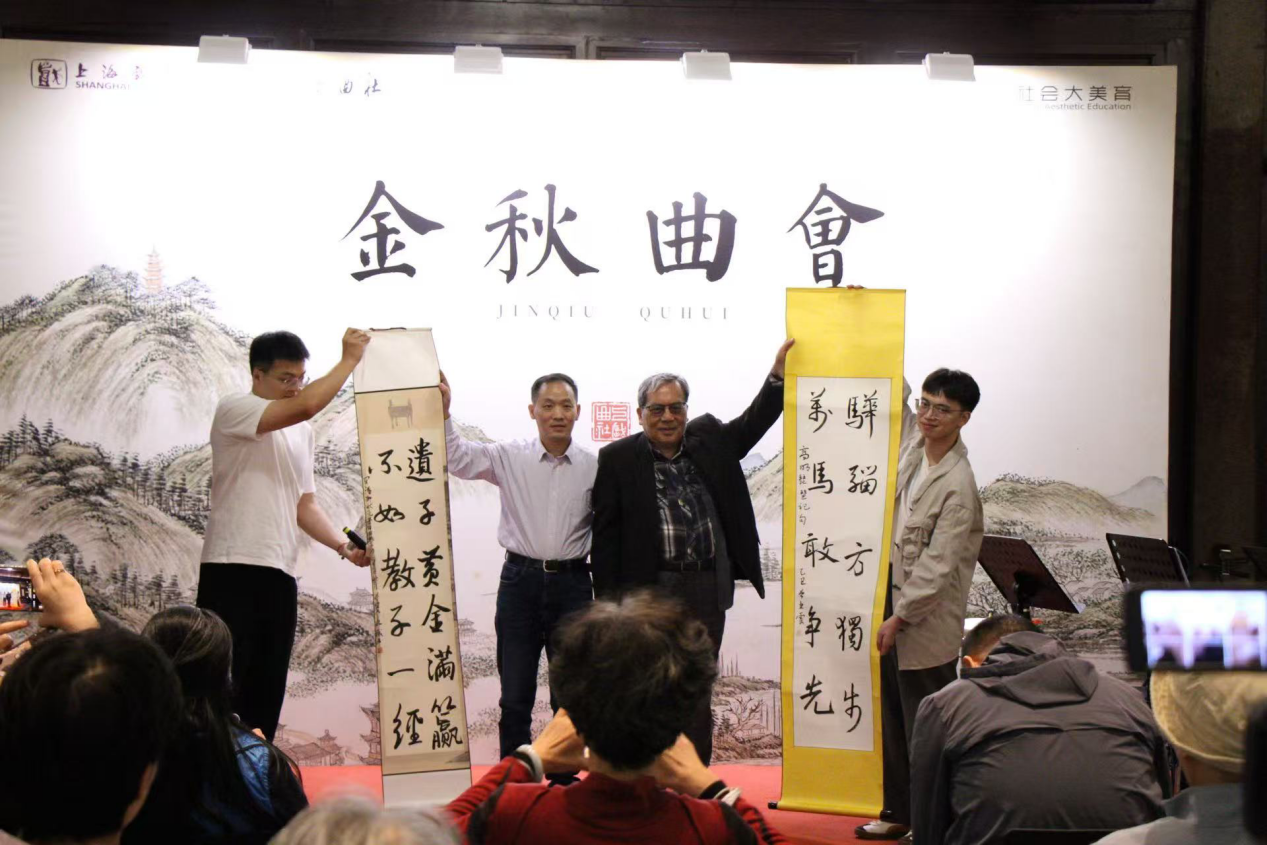 上海
SHANGHAI
曲社
社会大美育
Aesthetic Education
金秋曲會
JINQIU QUHUI
三戲
曲社
遺子黃金滿籯
不如教子一經
驊騮方獨步
萬馬敢争先
高明琵琶记句 乙巳